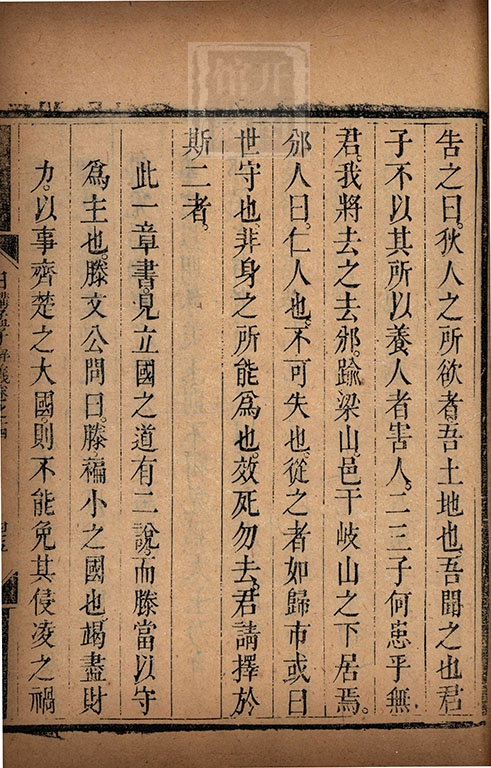 告之曰。狄人之所欲者。吾土地也。吾聞之也。君
子不以其所以養人者害人。二三子何患乎無
君。我將去之。去邠。踰梁山。邑于岐山之下居焉。
邠人曰。仁人也。不可失也。從之者如歸市。或曰
世守也。非身之所能爲也。效死勿去。君請擇於
斯二者。
此一章書。見立國之道有二說。而滕當以守
爲主也。滕文公問曰。滕褊小之國也。竭盡財
力。以事齊楚之大國。則不能免其侵凌之禍
日講
孟子
解義卷之十四